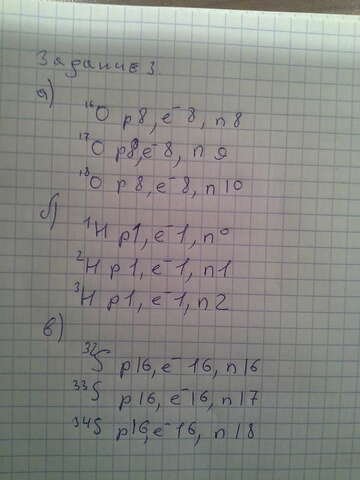 Задание 3.
а)
¹⁶O p8, e⁻8, n8
¹⁷O p8, e⁻8, n 9
¹⁸O p8, e⁻8, n10
б)
¹H p1, e⁻1, n⁰
²H p1, e⁻1, n1
³H p1, e⁻1, n2
в)
³²S p16, e⁻16, n16
³³S p16, e⁻16, n17
³⁴S p16, e⁻16, n18